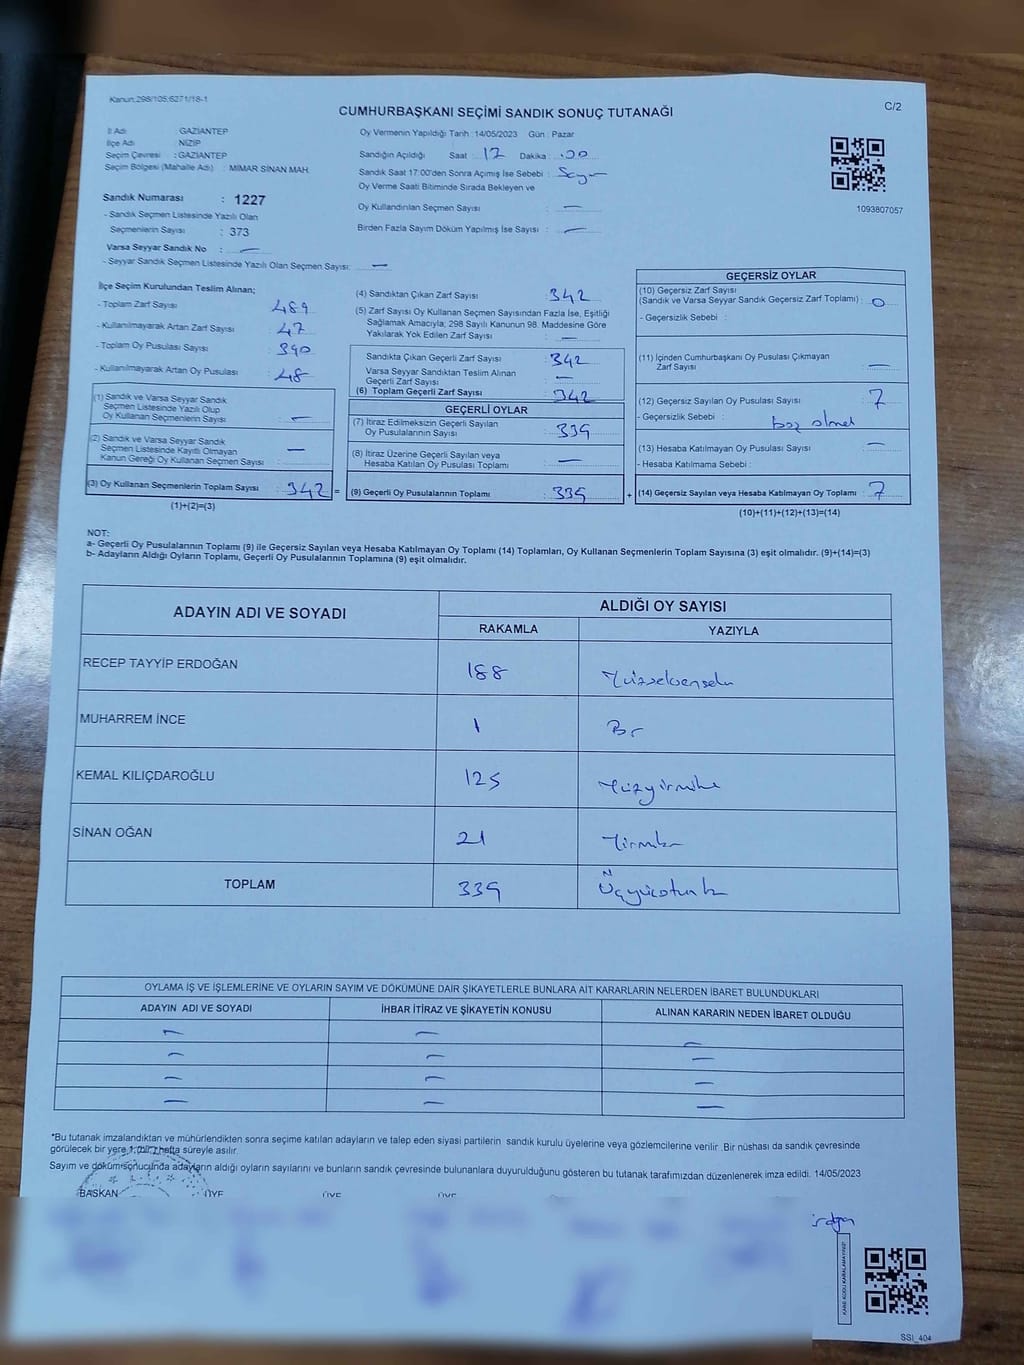 Kanun:298/105;6271/18-1
CUMHURBAŞKANI SEÇİMİ SANDIK SONUÇ TUTANAĞI
C/2
İl Adı : GAZİANTEP
İlçe Adı : NİZİP
Seçim Çevresi : GAZİANTEP
Seçim Bölgesi (Mahalle Adı) : MİMAR SİNAN MAH.
Sandık Numarası : 1227
- Sandık Seçmen Listesinde Yazılı Olan
Seçmenlerin Sayısı : 373
Varsa Seyyar Sandık No : —
- Seyyar Sandık Seçmen Listesinde Yazılı Olan Seçmen Sayısı: —
Oy Vermenin Yapıldığı Tarih : 14/05/2023 Gün : Pazar
Sandığın Açıldığı Saat : 17 Dakika : 00
Sandık Saat 17:00'den Sonra Açımış İse Sebebi :
Oy Verme Saati Bitiminde Sırada Bekleyen ve
Oy Kullandırılan Seçmen Sayısı : —
Birden Fazla Sayım Döküm Yapılmış İse Sayısı : —
1093807057
İlçe Seçim Kurulundan Teslim Alınan;
- Toplam Zarf Sayısı : 489
- Kullanılmayarak Artan Zarf Sayısı : 47
- Toplam Oy Pusulası Sayısı : 390
- Kullanılmayarak Artan Oy Pusulası : 48
(1) Sandık ve Varsa Seyyar Sandık
Seçmen Listesinde Yazılı Olup
Oy Kullanan Seçmenlerin Sayısı : —
(2) Sandık ve Varsa Seyyar Sandık
Seçmen Listesinde Kayıtlı Olmayan
Kanun Gereği Oy Kullanan Seçmen Sayısı : —
(3) Oy Kullanan Seçmenlerin Toplam Sayısı : 342 =
(1)+(2)=(3)
(4) Sandıktan Çıkan Zarf Sayısı : 342
(5) Zarf Sayısı Oy Kullanan Seçmen Sayısından Fazla İse, Eşitliği
Sağlamak Amacıyla; 298 Sayılı Kanunun 98. Maddesine Göre
Yakılarak Yok Edilen Zarf Sayısı : —
Sandıkta Çıkan Geçerli Zarf Sayısı : 342
Varsa Seyyar Sandıktan Teslim Alınan
Geçerli Zarf Sayısı : —
(6) Toplam Geçerli Zarf Sayısı : 342
GEÇERLİ OYLAR
(7) İtiraz Edilmeksizin Geçerli Sayılan
Oy Pusulalarının Sayısı : 335
(8) İtiraz Üzerine Geçerli Sayılan veya
Hesaba Katılan Oy Pusulası Toplamı : —
(9) Geçerli Oy Pusulalarının Toplamı : 335 +
GEÇERSİZ OYLAR
(10) Geçersiz Zarf Sayısı
(Sandık ve Varsa Seyyar Sandık Geçersiz Zarf Toplamı) : 0
- Geçersizlik Sebebi :
(11) İçinden Cumhurbaşkanı Oy Pusulası Çıkmayan
Zarf Sayısı : —
(12) Geçersiz Sayılan Oy Pusulası Sayısı : 7
- Geçersizlik Sebebi :
(13) Hesaba Katılmayan Oy Pusulası Sayısı : —
- Hesaba Katılmama Sebebi :
(14) Geçersiz Sayılan veya Hesaba Katılmayan Oy Toplamı : 7
(10)+(11)+(12)+(13)=(14)
NOT:
a- Geçerli Oy Pusulalarının Toplamı (9) ile Geçersiz Sayılan veya Hesaba Katılmayan Oy Toplamı (14) Toplamları, Oy Kullanan Seçmenlerin Toplam Sayısına (3) eşit olmalıdır. (9)+(14)=(3)
b- Adayların Aldığı Oyların Toplamı, Geçerli Oy Pusulalarının Toplamına (9) eşit olmalıdır.
ADAYIN ADI VE SOYADI
ALDIĞI OY SAYISI
RAKAMLA YAZIYLA
RECEP TAYYİP ERDOĞAN 188
MUHARREM İNCE 1
KEMAL KILIÇDAROĞLU 125
SİNAN OĞAN 21
TOPLAM 335
OYLAMA İŞ VE İŞLEMLERİNE VE OYLARIN SAYIM VE DÖKÜMÜNE DAİR ŞİKAYETLERLE BUNLARA AİT KARARLARIN NELERDEN İBARET BULUNDUKLARI
ADAYIN ADI VE SOYADI İHBAR İTİRAZ VE ŞİKAYETİN KONUSU ALINAN KARARIN NEDEN İBARET OLDUĞU
— — —
— — —
— — —
— — —
*Bu tutanak imzalandıktan ve mühürlendikten sonra seçime katılan adayların ve talep eden siyasi partilerin sandık kurulu üyelerine veya gözlemcilerine verilir. Bir nüshası da sandık çevresinde
görülecek bir yere 1 (bir) hafta süreyle asılır.
Sayım ve döküm sonucunda adayların aldığı oyların sayılarını ve bunların sandık çevresinde bulunanlara duyurulduğunu gösteren bu tutanak tarafımızdan düzenlenerek imza edildi. 14/05/2023
BAŞKAN ÜYE ÜYE ÜYE
SSI_404